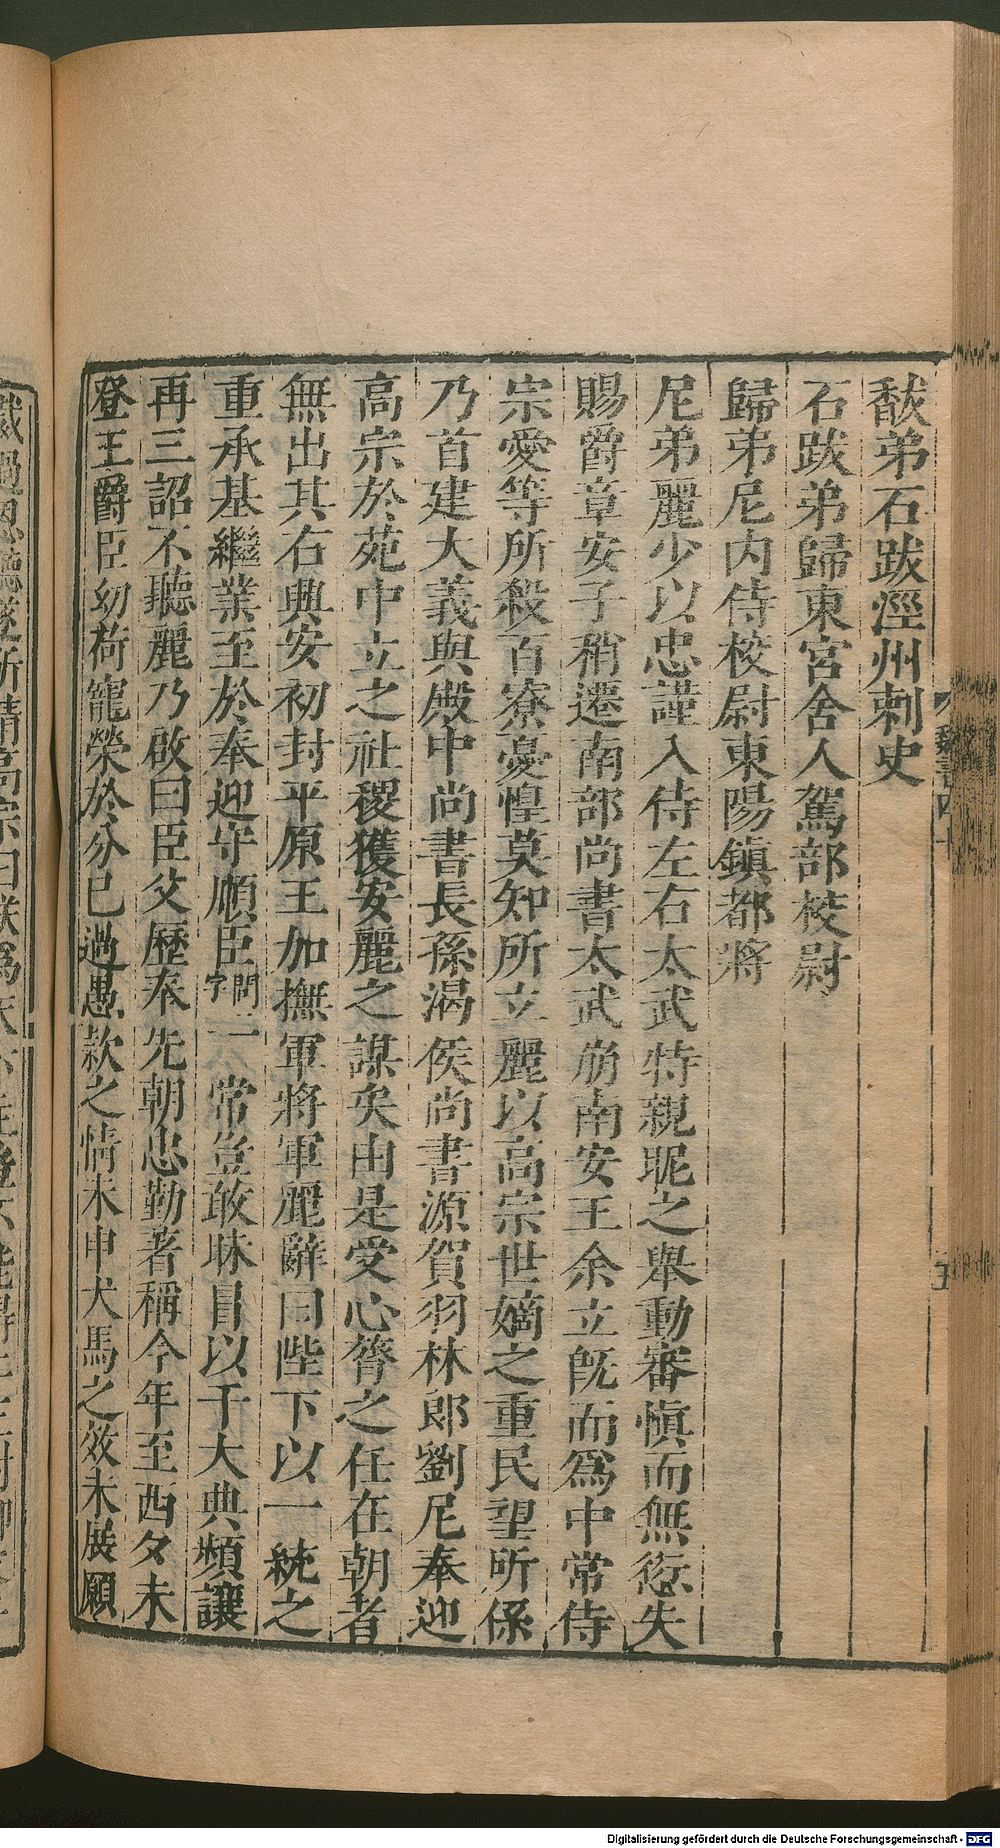 馛弟石跋涇州刺史
石跋弟歸東宮舍人駕部校尉
歸弟尼內侍校尉東陽鎮都將
尼弟麗少以忠謹入侍左右太武特親昵之舉動審慎而無愆失
賜爵章安子稍遷南部尚書太武崩南安王余立旣而爲中常侍
宗愛等所殺百寮憂惶莫知所立麗以高宗世嫡之重民望所係
乃首建大義與殿中尚書長孫渴侯尚書源賀羽林郎劉尼奉迎
高宗於苑中立之社稷獲安麗之謀矣由是受心膂之任在朝者
無出其右興安初封平原王加撫軍將軍麗辭曰陛下以一統之
重承基繼業至於奉迎守順臣問二字常豈敢昧冒以干大典頻讓
再三詔不聽麗乃啟曰臣父歷奉先朝忠勤著稱今年至西夕未
登王爵臣幼荷寵榮於分已過愚款之情未申犬馬之效未展願
魏書四十
五
Digitalisierung gefördert durch die Deutsche Forschungsgemeinschaft - DFG